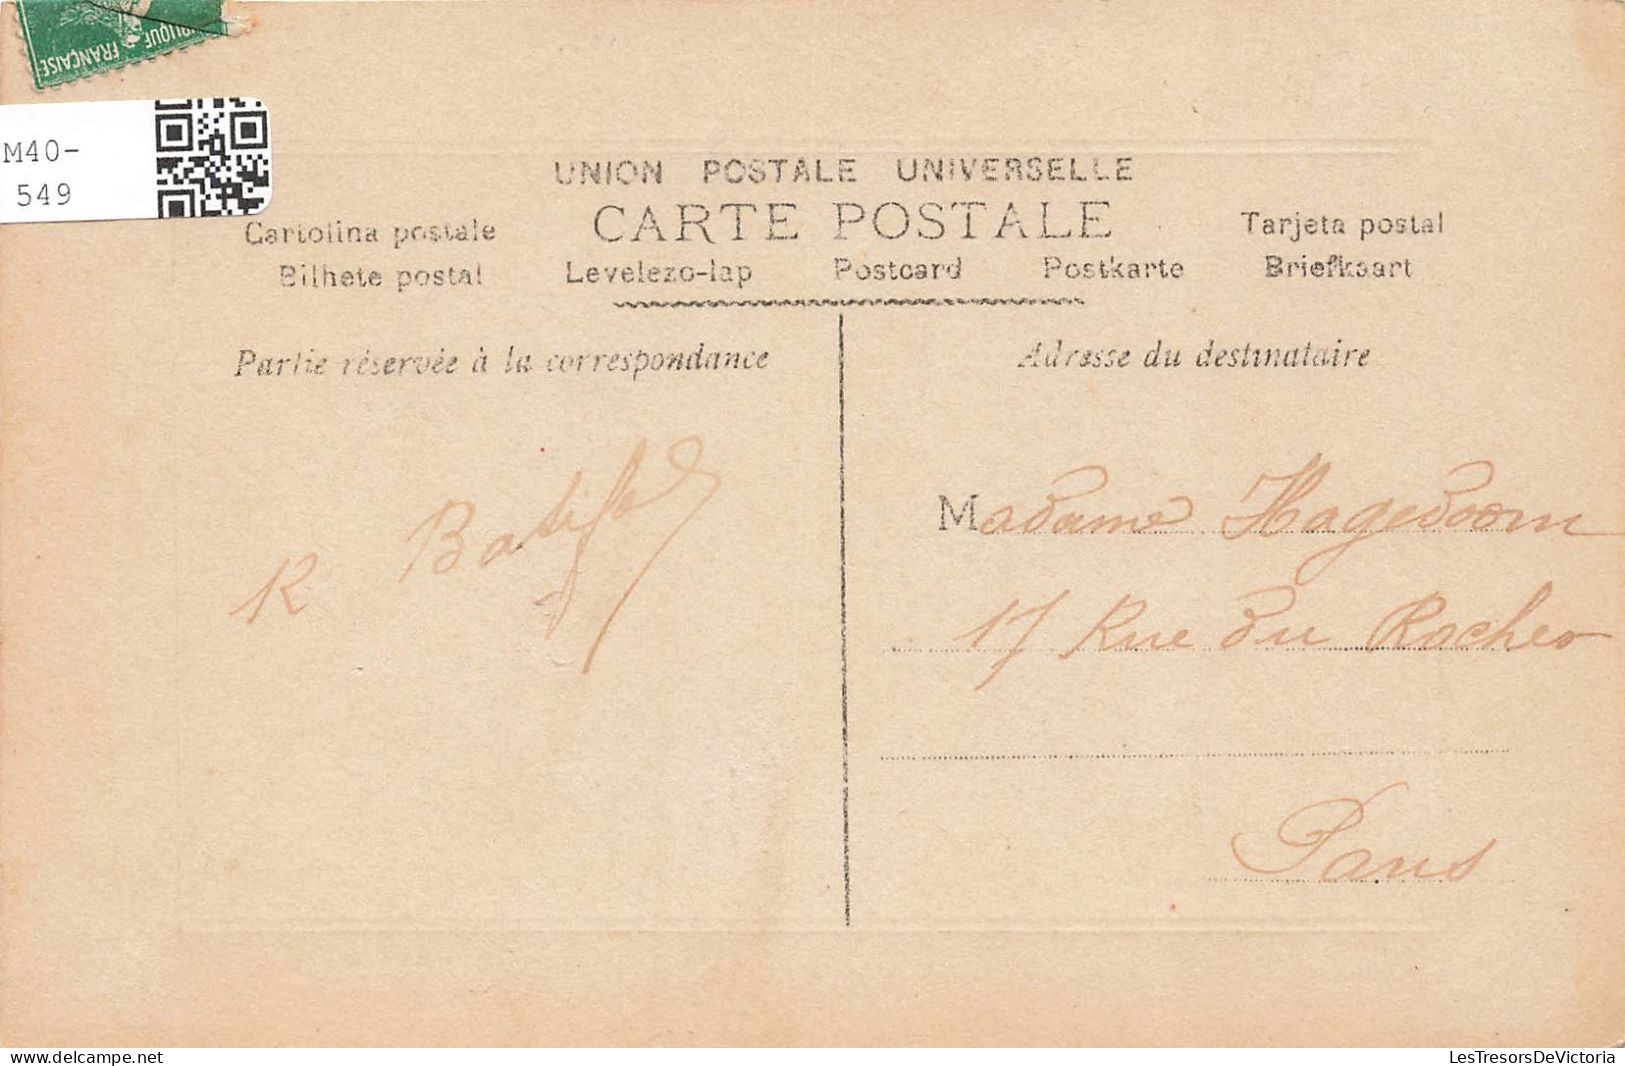 PUBLIQUE FRANÇAISE
M40-
549
UNION POSTALE UNIVERSELLE
CARTE POSTALE
Cartolina postale
Tarjeta postal
Bilhete postal Levelezo-lap Postcard Postkarte Briefkaart
Partie réservée à la correspondance
Adresse du destinataire
Madame Hagedoorn
17 Rue du Rocher
Paris
delcampe.net
LesTresorsDeVictoria